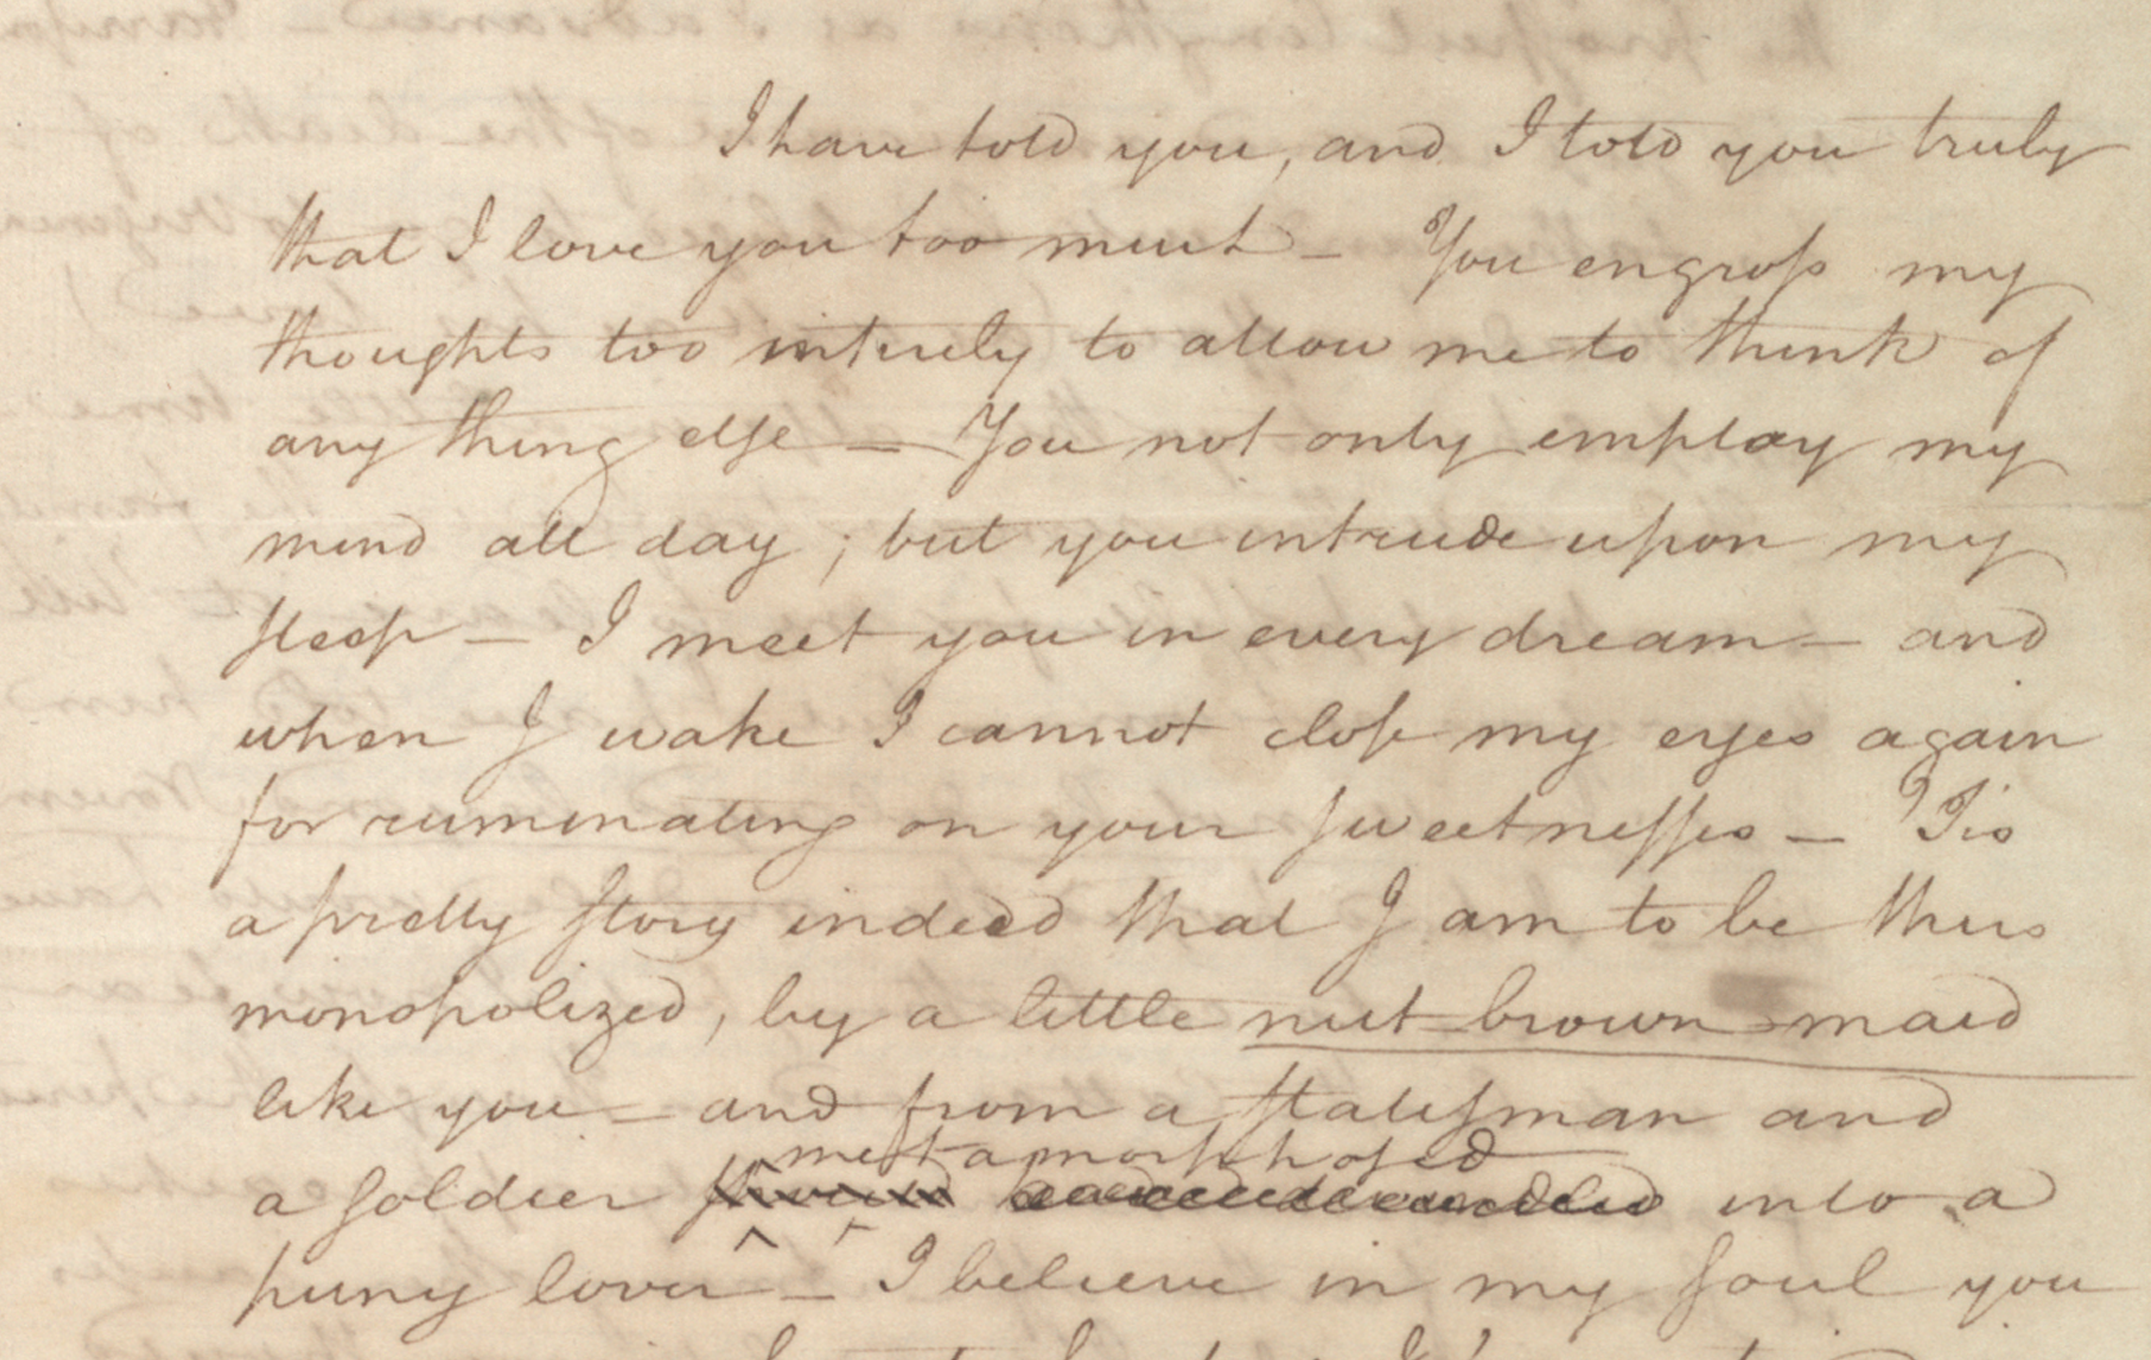 I have told you, and I told you truly
that I love you too much – You engross my
thoughts too intirely to allow me to think of
any thing else – You not only employ my
mind all day ; but you intrude upon my
sleep – I meet you in every dream – and
when I wake I cannot close my eyes again
for ruminating on your sweetnesses – 'Tis
a pretty story indeed that I am to be thus
monopolized, by a little nut brown maid
like you – and from a statesman and
metamorphosed
a soldier into a
puny lover – I believe in my soul you